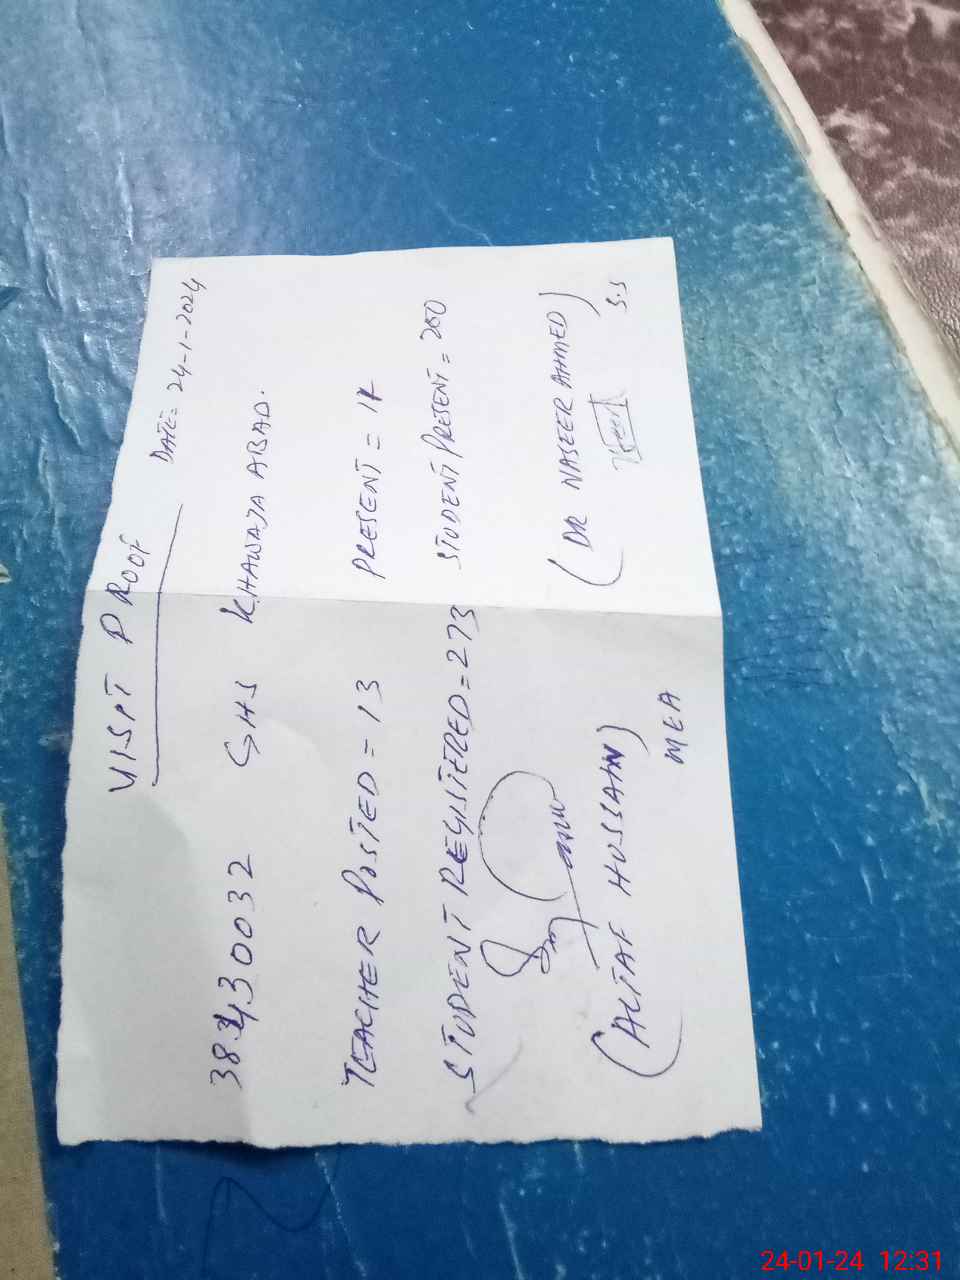 VISIT PROOF
DATE= 24-1-2024
38430032 GHS KHAWAJA ABAD.
TEACHER POSTED = 13 PRESENT =
STUDENT REGISTERED = 273 STUDENT PRESENT = 200
(ALTAF HUSSAIN) (DR NASEER AHMED)
MEA S.S
24-01-24 12:31